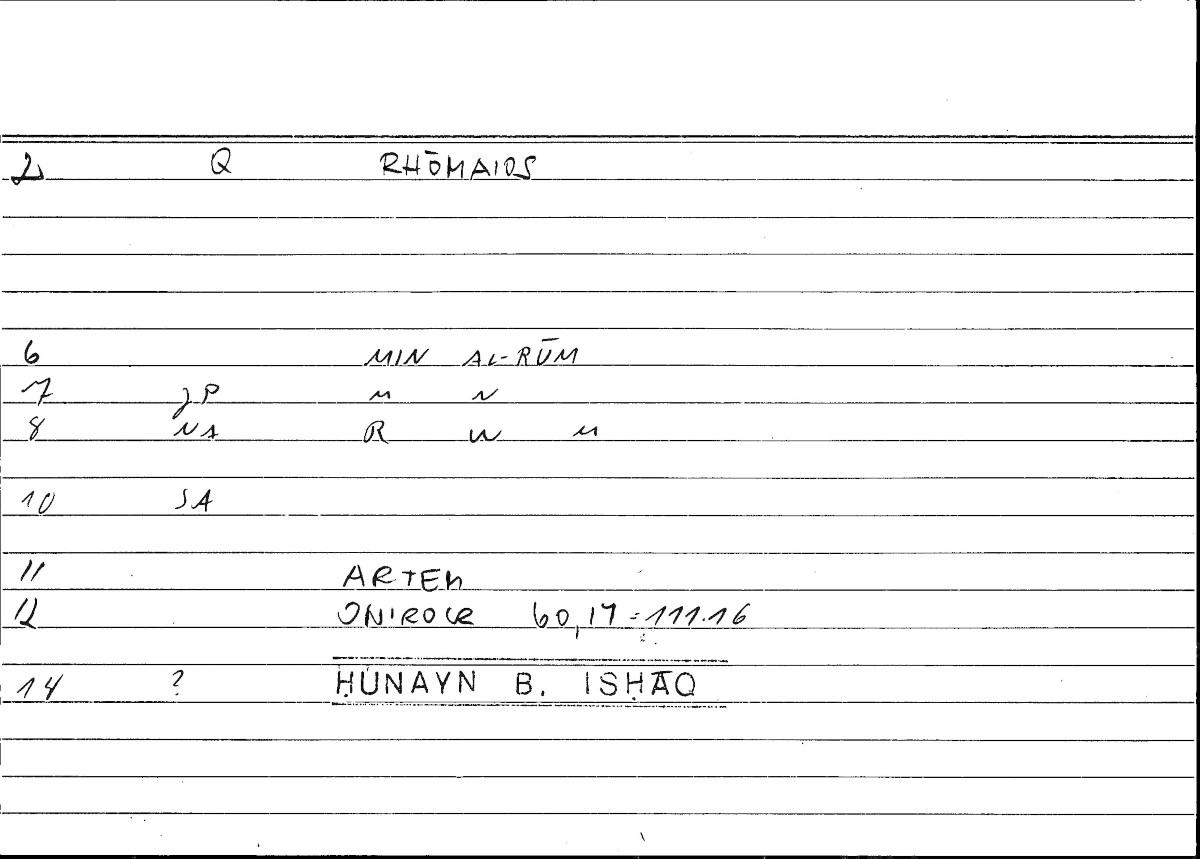 2 Q RHŌMAIOS
6 MIN AL-RŪM
7 JP M N
8 NA R W M
10 SA
11 ARTEM
12 ONIROCR 60,17=111.16
14 ? ḤUNAYN B. ISḤĀQ